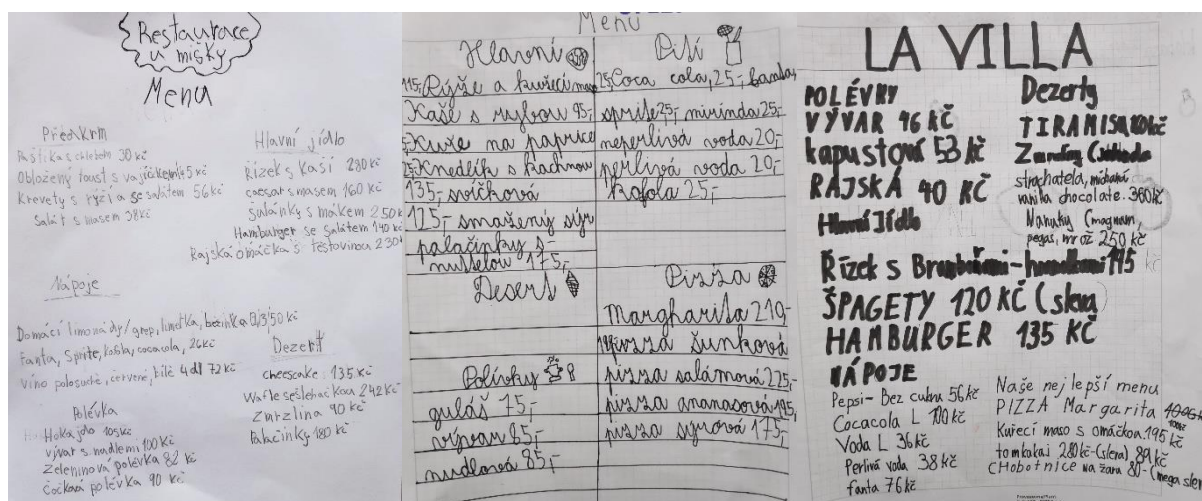 Restaurace
u mišky
Menu
Předkrm
Paštika s chlebem 30 kč
Obložený toust s vajíčkem 45 kč
Krevety s rýží a se salátem 56 kč
Salát s masem 38 kč
Hlavní jídlo
Řízek s kaší 280 kč
caesar s masem 160 kč
Šulánky s mákem 250 k
Hamburger se salátem 140 kč
Rajská omáčka s těstovinou 230
Nápoje
Domácí limonády/grep, limetka, bezinka 0,3l 50 kč
fanta, Sprite, kofola, cocacola, 26kč
víno polosuché, červené, bílé 4dl 72 kč
Dezert
cheescake. 135 kč
Wafle se šlehačkou 242 kč
Zmrzlina 90 kč
Palačinky 180 kč
Polévka
Hokajdo 105 kč
vývar s nudlemi 100 kč
Zeleninová polévka 82 kč
Čočková polévka 90 kč
Menu
Hlavní
115,- Rýže a kuřecí maso
Kaše s rybou 95,-
Kuře na paprice
Knedlík s kachnou
135,- svíčková
125,- smažený sýr
palačinky s-
nutelou 175,-
Desert
Polívky
guláš 75,-
vývar 85,-
nudlová 85,-
Pití
25, Coca cola, 25,-
sprite 25,- mirinda 25,-
neperlivá voda 20,-
perlivá voda 20,-
kofola 25,-
Pizza
Margharita 210,-
pizza šunková
pizza salámová 225,-
pizza ananasová 195,
pizza syrová 175,-
LA VILLA
POLÉVKY
VÝVAR 46 KČ
kapustová 53 kč
RAJSKÁ 40 KČ
Hlavní Jídlo
Řízek s 195 kč
ŠPAGETY 120 KČ (sleva)
HAMBURGER 135 KČ
NÁPOJE
Pepsi- Bez cukru 56kč
Cocacola L 100 kč
Voda L 36 kč
Perlivá voda 38 kč
fanta 76 kč
Dezerty
TIRAMISU
strachatela, míchaná
vanilka chocolate. 360kč
Nanuky (magnum,
pegas, mrož 250 kč
Naše nejlepší menu
PIZZA Margarita
Kuřecí maso s omáčkou. 195 kč
tomkakai 280kč-(sleva) 89 kč
CHobotnice na žara 80-(mega slev